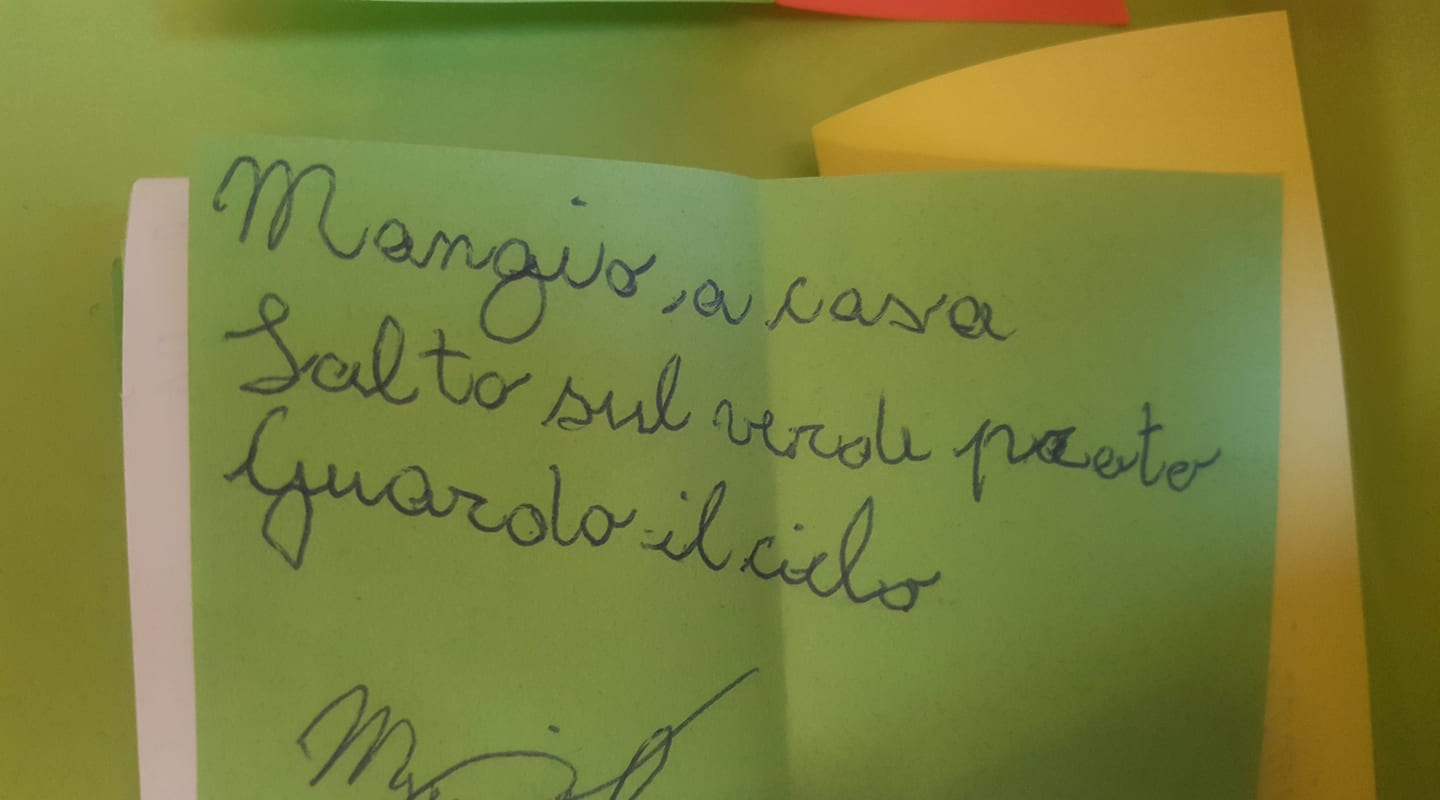 Mangio a casa
Salto sul verde prato
Guardo il cielo